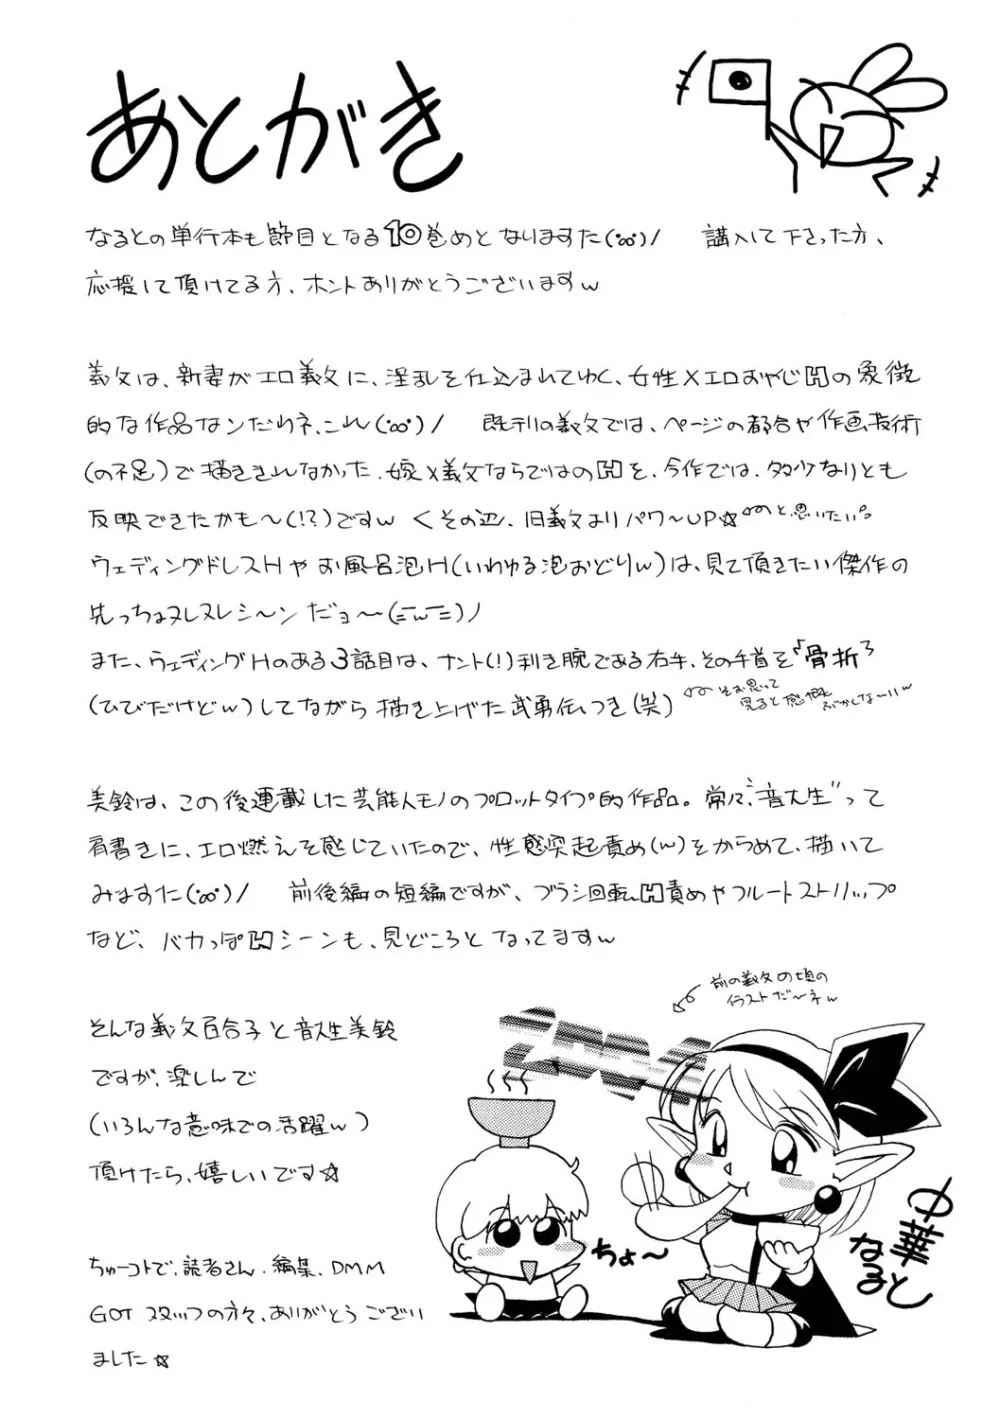 あとがき
なるとの単行本も節目となる10巻めとなりますた(°∞°)/ 購入して下さった方、
応援して頂けてる方、ホントありがとうございますw
義父は、新妻がエロ義父に、淫乱を仕込まれてゆく、女性×エロおやじHの象徴
的な作品なンだわネ、これ(°∞°)/ 既刊の義父では、ページの都合や作画技術
(の不足)で描ききれなかった、嫁×義父ならではのHを、今作では、多少なりとも
反映できたかも〜(!?)ですw くその辺、旧義父よりパワ〜UP☆ と、思いたい。
ウェディングドレスHや お風呂泡H(いわゆる泡おどりw)は、見て頂きたい傑作の
先っちょヌレヌレシ〜ンだョ〜(=w=)ノ
また、ウェディングHのある3話目は、ナント(!)利き腕である右手、その手首を「骨折」
(ひびだけどw)してながら描き上げた武勇伝つき(笑)
そお思って
見ると感慨
ぶかしな〜いw
美鈴は、この後連載した芸能人モノのプロットタイプ的作品。常々、“音大生”って
肩書きに、エロ燃えを感じていたので、性感突起責め(w)をからめて、描いて
みますた(°∞°)/ 前後編の短編ですが、ブラシ回転H責めやフルートストリップ
など、バカっぽHシーンも、見どころとなってますw
そんな義父百合子と音大生美鈴
ですが、楽しんで
(いろんな意味での活躍w)
頂けたら、嬉しいです☆
ちゅーコトで、読者さん、編集、DMM
GOTスタッフの方々、ありがとうござい
ました☆
前の義父の頃の
イラストだ〜ネw
2004
ちょ〜
中華
なると